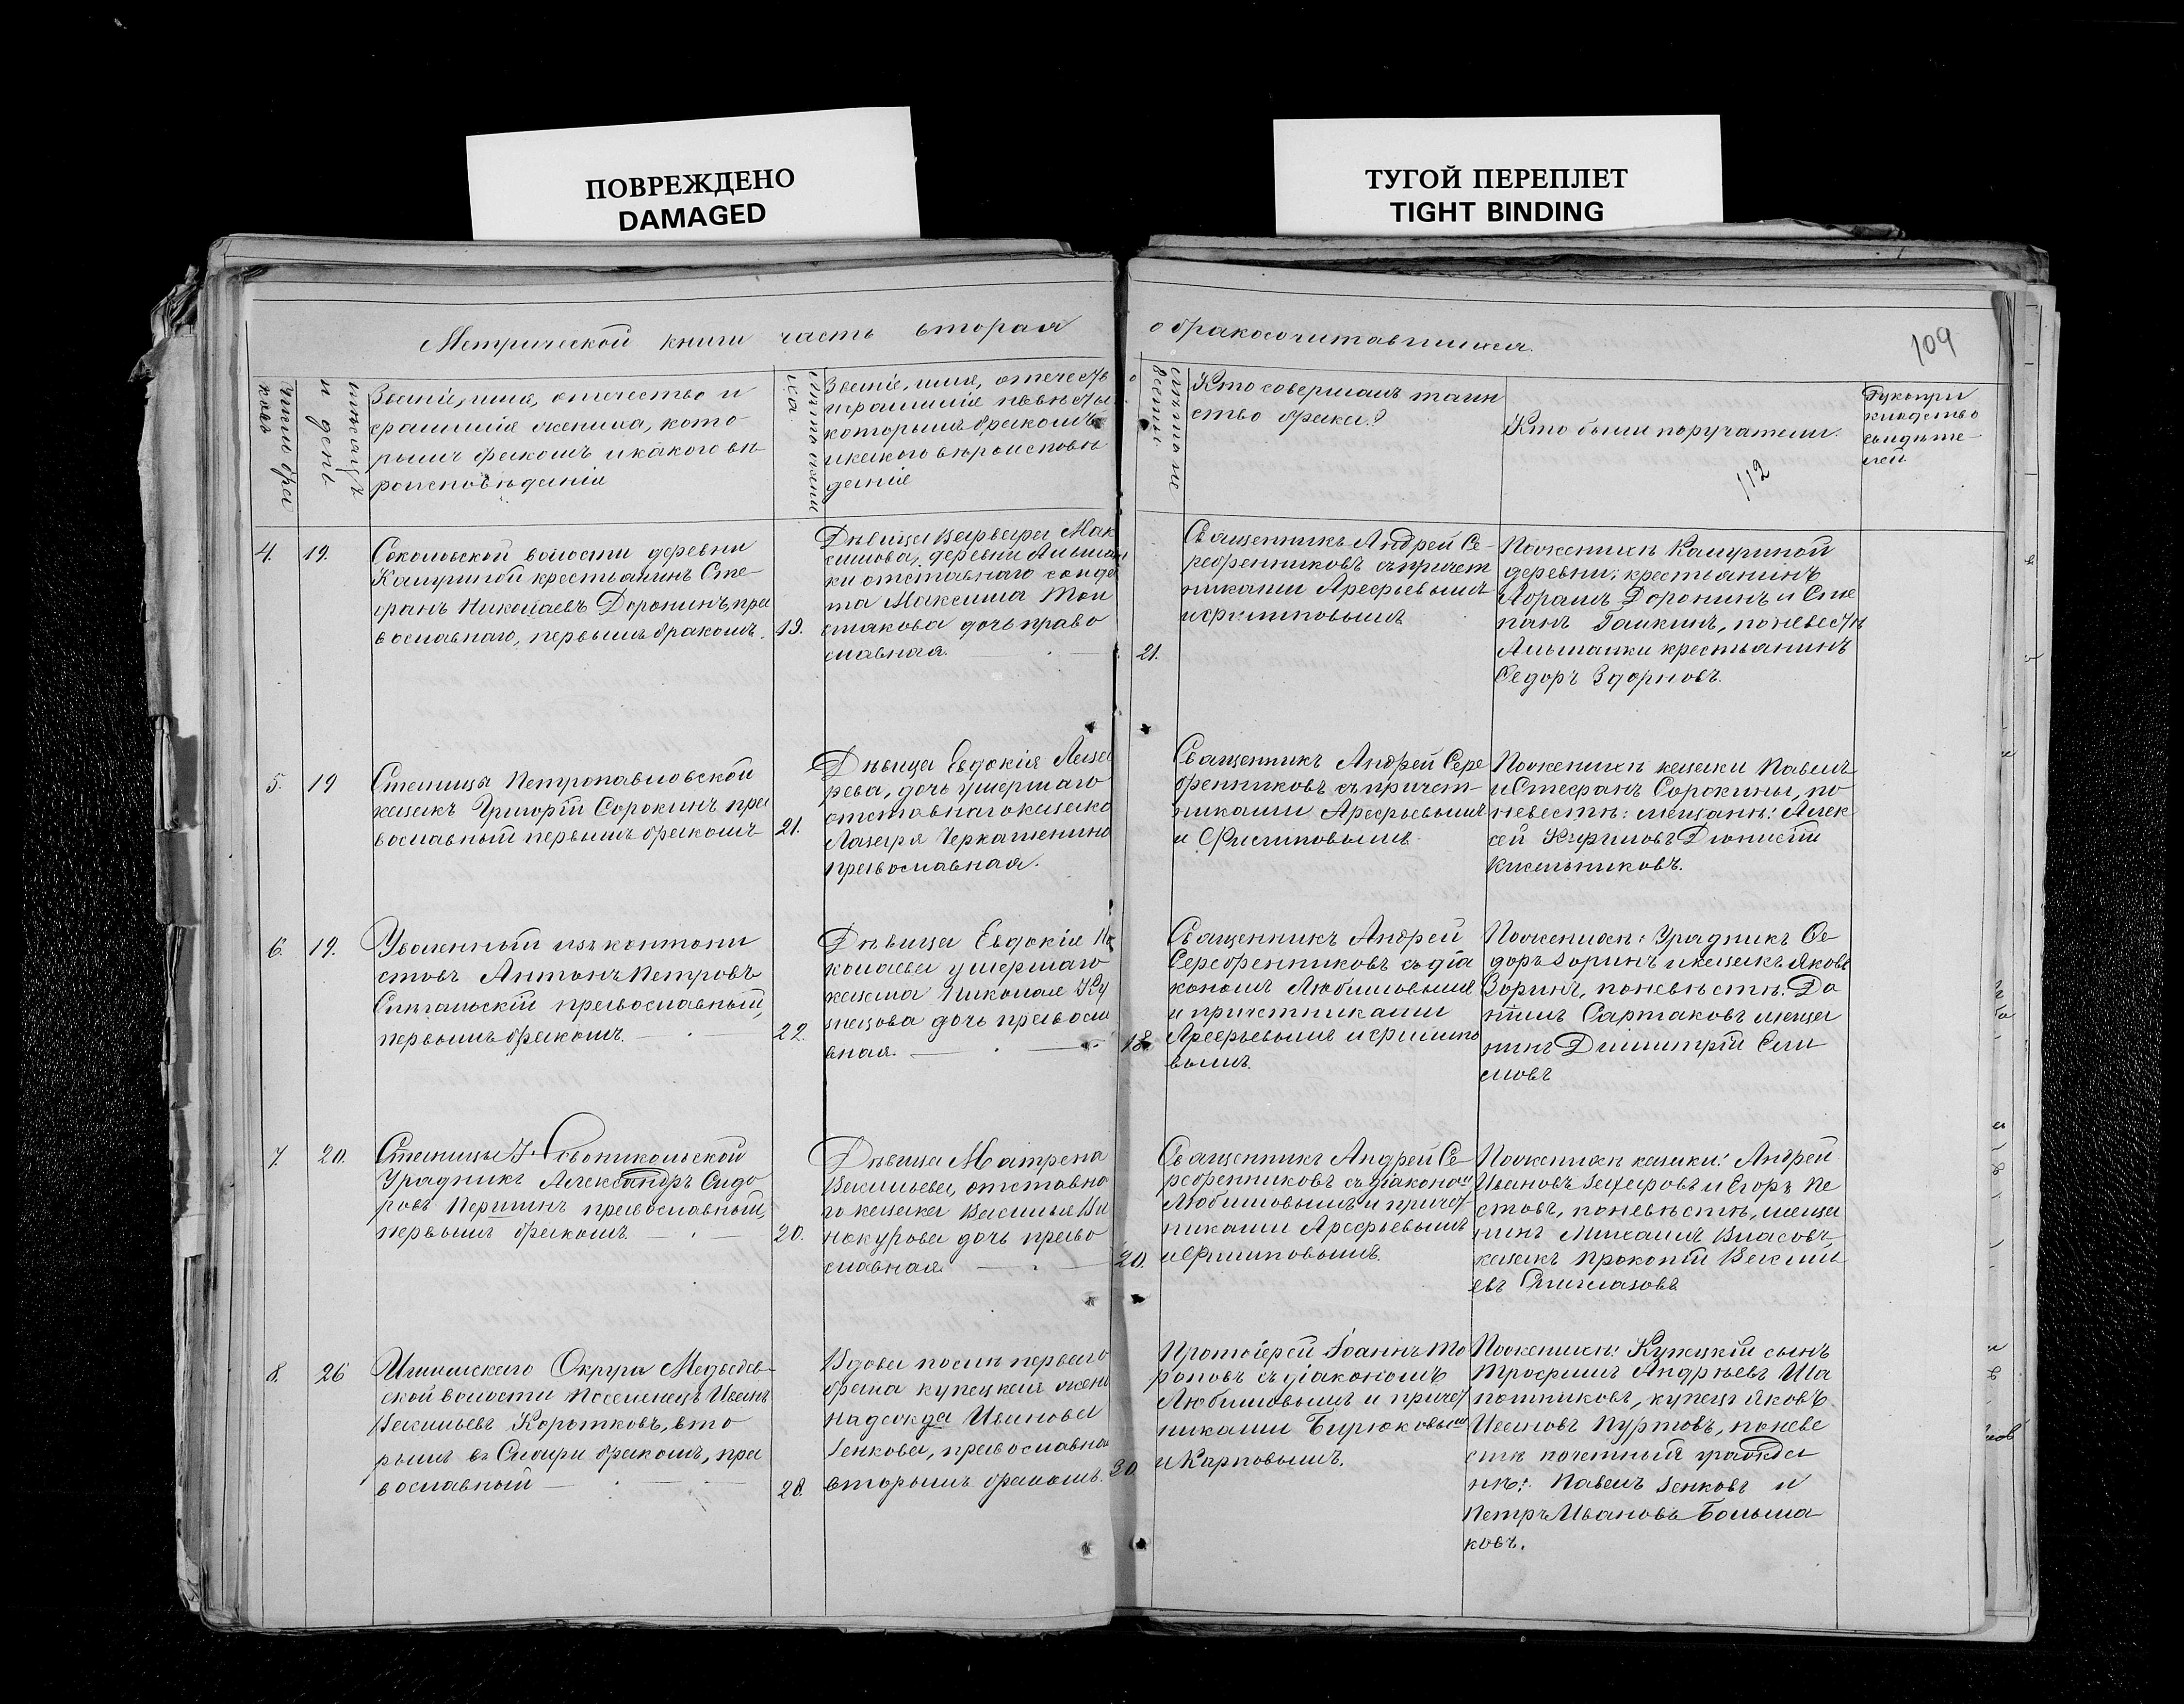 ПОВРЕЖДЕНО
DAMAGED
ТУГОЙ ПЕРЕПЛЕТ
TIGHT BINDING
Метрической книги часть вторая
о бракосочитавшихся.
109
число бра
ковъ
мѣсяцъ
и день
Званіе, имя, отечество и
фамилія жениха, кото
рымъ бракомъ и какого вѣ
роисповѣданія
лѣта жени
ха
Званіе, имя, отечество
и фамилія невѣсты
которымъ бракомъ
и какого вѣроисповѣ
данія
лѣта не
весты
Кто совершалъ таин
ство брака?
Кто были поручатели.
112
Рукопри
кладство
свидѣте-
лей
4.
19.
Соколовской волости деревни
Кашриной крестьянинъ Сте-
фанъ Николаевъ Доронинъ, пра
вославнаго, первымъ бракомъ.
19.
Дѣвица Варвара Мак
симова, деревни
ки отставнаго солда
та Максима Тол
стакова дочь право
славная.
21.
Священникъ Андрей Се-
ребренниковъ съ причет
никами Арефьевымъ
и Филиповымъ
По женихѣ Кашриной
деревни, крестьянинъ
Абрамъ Доронинъ и Сте
панъ Галкинъ, по невестѣ
крестьянинъ
Федоръ Здорновъ.
5.
19
Станицы Петропавловской
казакъ Григорій Сорокинъ пра
вославный первымъ бракомъ
21.
Дѣвица Евдокія Лаза
рева, дочь умершаго
отставнаго казака
Лазаря Черкашенина
православная.
Священникъ Андрей Сере
бренниковъ съ причет-
никами Арефьевымъ
и Филиповымъ
По женихѣ казаки Павелъ
и Стефанъ Сорокины, по
невестѣ: мещанѣ: Алек
сѣй Кириловъ Діонисій
Кисельниковъ.
6.
19.
Уволенный изъ кантони
стовъ Антонъ Петровъ
православный,
первымъ бракомъ.
22.
Дѣвица Евдокія Ни
колаева умершаго
казака Николая Ку
знецова дочь правосла
вная.
18.
Священникъ Андрей
Серебренниковъ съ діа
кономъ Любимовымъ
и причетниками
Арефьевымъ и Филипо
вымъ.
По женихѣ: Урядникъ Фе
доръ Зоринъ и казакъ Яковъ
Зоринъ, по невѣстѣ: Да
ніилъ Сартаковъ меща
нинъ Димитрій
7.
20.
Станицы Новоникольской
Урядникъ Александръ Сидо
ровъ Першинъ православный,
первымъ бракомъ.
20.
Дѣвица Матрена
Васильева, отставна
го казака Василья Ви
нокурова дочь право
славная
20.
Священникъ Андрей Се-
ребренниковъ съ діаконом
Любимовымъ и причет
никами Арефьевымъ
и Филиповымъ.
По женихѣ казаки: Андрей
Ивановъ Захаровъ и Егоръ Пе
стовъ, по невѣстѣ, меща
нинъ Михаилъ Власовъ,
казакъ Прокопій Василь
евъ
8.
26
Ишимскаго Округа Медведев-
ской волости Поселенецъ Иванъ
Васильевъ Коротковъ, вто
рымъ въ Сибири бракомъ, пра
вославный
28.
Вдова послѣ перваго
брака купецкая жена
Надежда Иванова
Зенкова, православна
вторымъ бракомъ.
30
Протоіерей Іоаннъ То
роповъ съ діакономъ
Любимовымъ и причет
никами Бирюковым
и Карповымъ.
По женихѣ: Купецкій сынъ
Трофимъ Андрѣевъ Ша
пошниковъ, купецъ Яковъ
Ивановъ Пуртовъ, по неве
стѣ почетный гражда
нѣ: Павелъ Зенковъ и
Петръ Ивановъ Больша
ковъ.